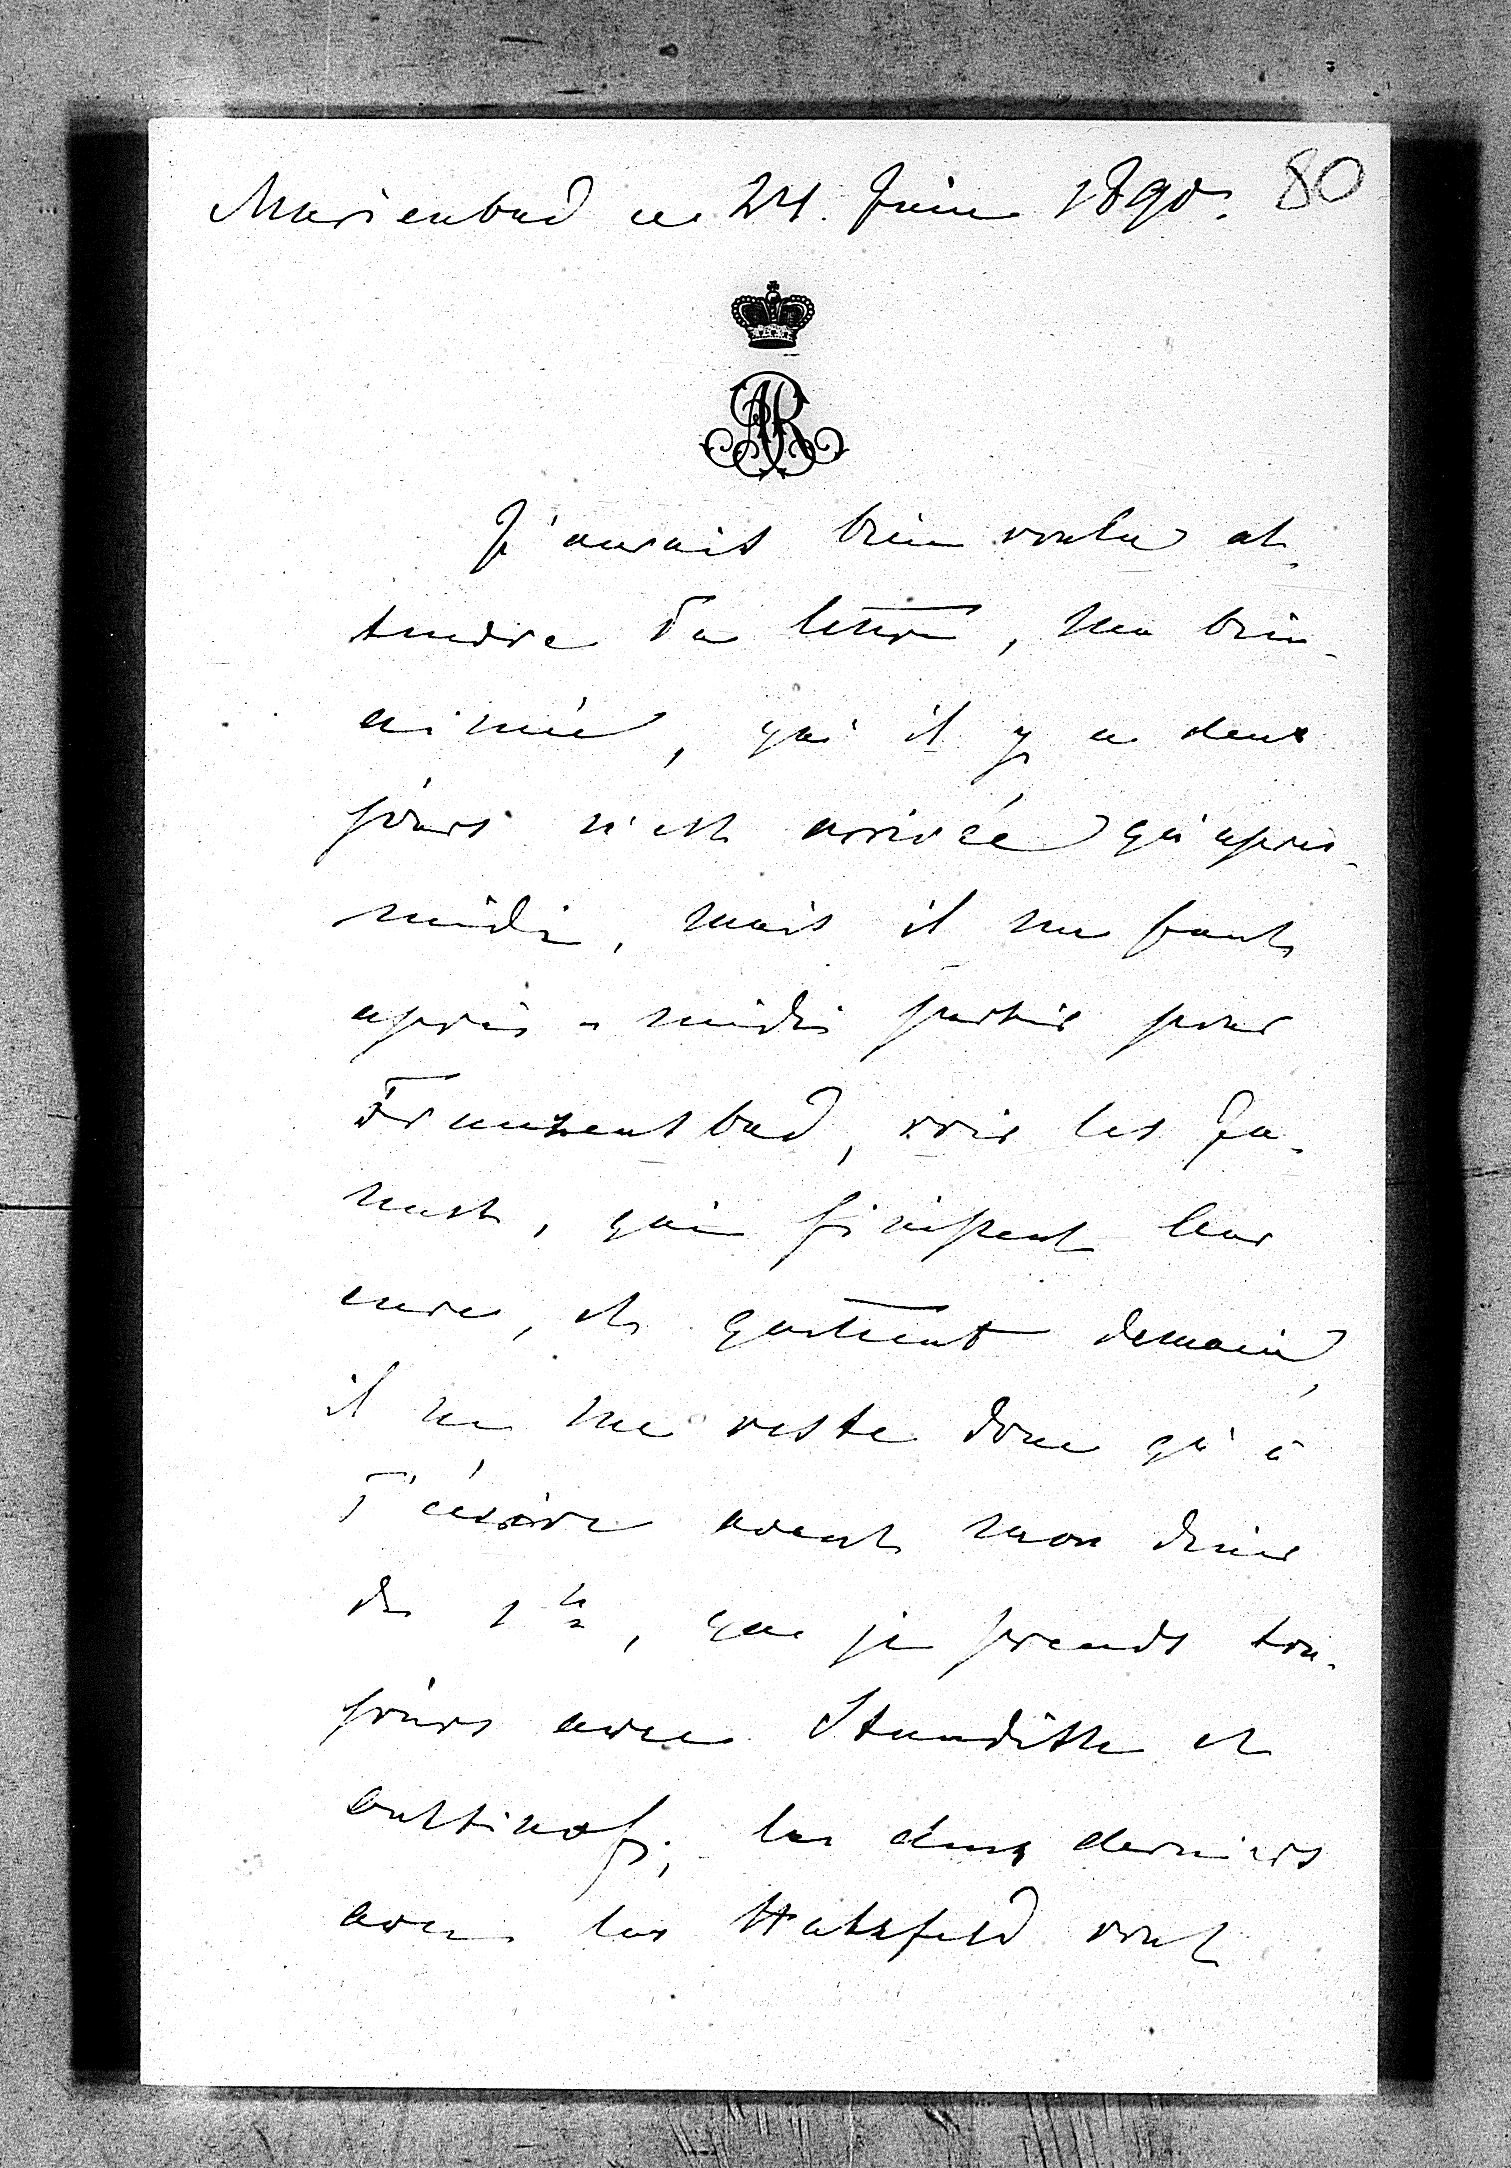 Marienbad ce 24. Juin 1890.
80
AR
J'aurais bien voulu at-
tendre Ta lettre, ma bien-
aimée, qui il y a deux
jours n'est arrivée qu'après-
midi, mais il me faut
après-midi partir pour
Franzensbad, voir les
qui finissent leur
cure, et quittent demain,
il ne me reste donc qu'à
T'écrire avant mon diner
de 1h, que je prends tou-
jours avec et
les deux derniers
avec les Hatzfeld vont